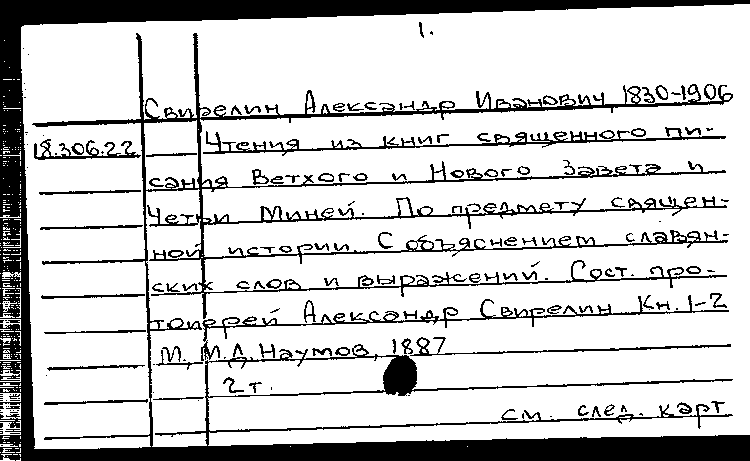 1.
Свирелин, Александр Иванович, 1830-1906
18.306.22 Чтения из книг священного пи-
сания Ветхого и Нового Завета и
Четьи Миней. По предмету священ-
ной истории. С объяснением славян-
ских слов и выражений. Сост. про-
тоиерей Александр Свирелин Кн. 1-2
М., М.Д. Наумов, 1887
2 т.
см. след. карт